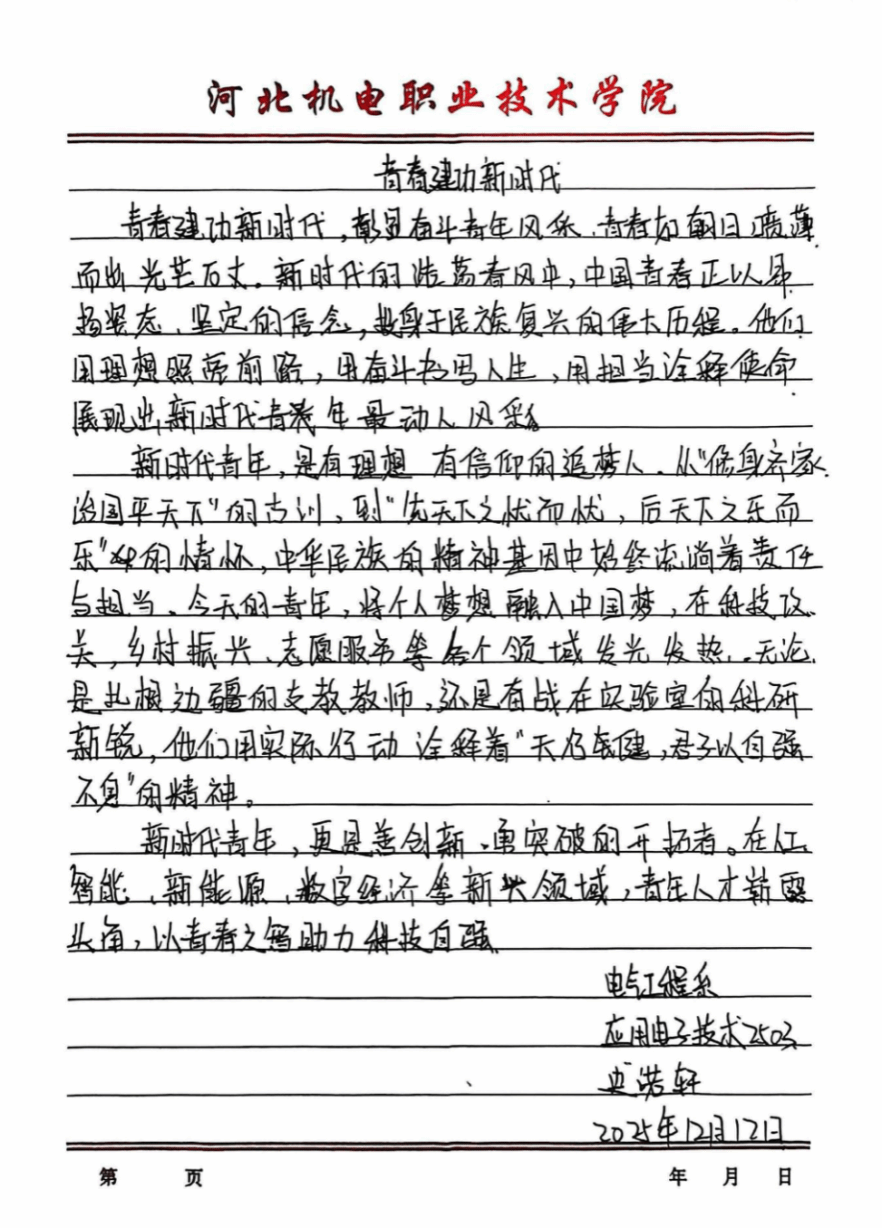 河北机电职业技术学院
青春建功新时代
青春建功新时代，彰显奋斗青年风采，青春如朝日喷薄
而出光芒万丈。新时代的浩荡春风中，中国青春正以昂
扬姿态、坚定的信念，投身于民族复兴的伟大历程。他们
用理想照亮前路，用奋斗书写人生，用担当诠释使命
展现出新时代青年最动人风彩
新时代青年，是有理想 有信仰的追梦人．从“修身齐家
治国平天下”的古训，到“先天下之忧而忧，后天下之乐而
乐”的情怀，中华民族的精神基因中始终流淌着责任
与担当。今天的青年，将个人梦想融入中国梦，在科技攻
关，乡村振兴、志愿服务等各个领域发光发热．无论
是扎根边疆的支教教师，还是奋战在实验室的科研
新锐，他们用实际行动诠释着“天行健，君子以自强
不息”的精神。
新时代青年，更是善创新、勇突破的开拓者。在人工
智能、新能源、数字经济等新兴领域，青年人才崭露
头角，以青春之智助力科技自强
电气工程系
应用电子技术2503
史浩轩
2025年12月12日
第 页 年 月 日